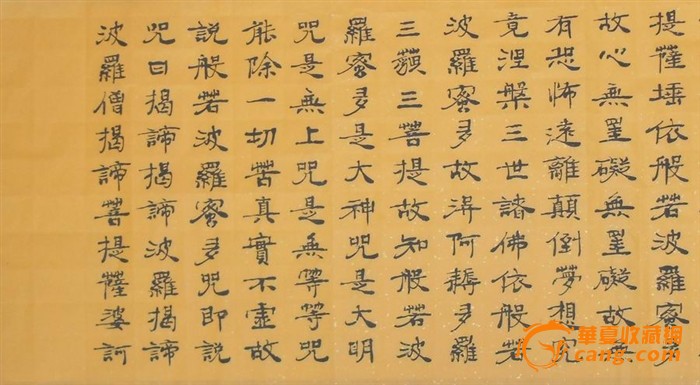 提薩埵依般若波羅蜜多
故心無罣礙無罣礙故無
有恐怖遠離顛倒夢想究
竟涅槃三世諸佛依般若
波羅蜜多故得阿耨多羅
三藐三菩提故知般若波
羅蜜多是大神咒是大明
咒是無上咒是無等等咒
能除一切苦真實不虛故
說般若波羅蜜多咒即說
咒曰揭諦揭諦波羅揭諦
波羅僧揭諦菩提薩婆訶
華夏收藏网
cang.com